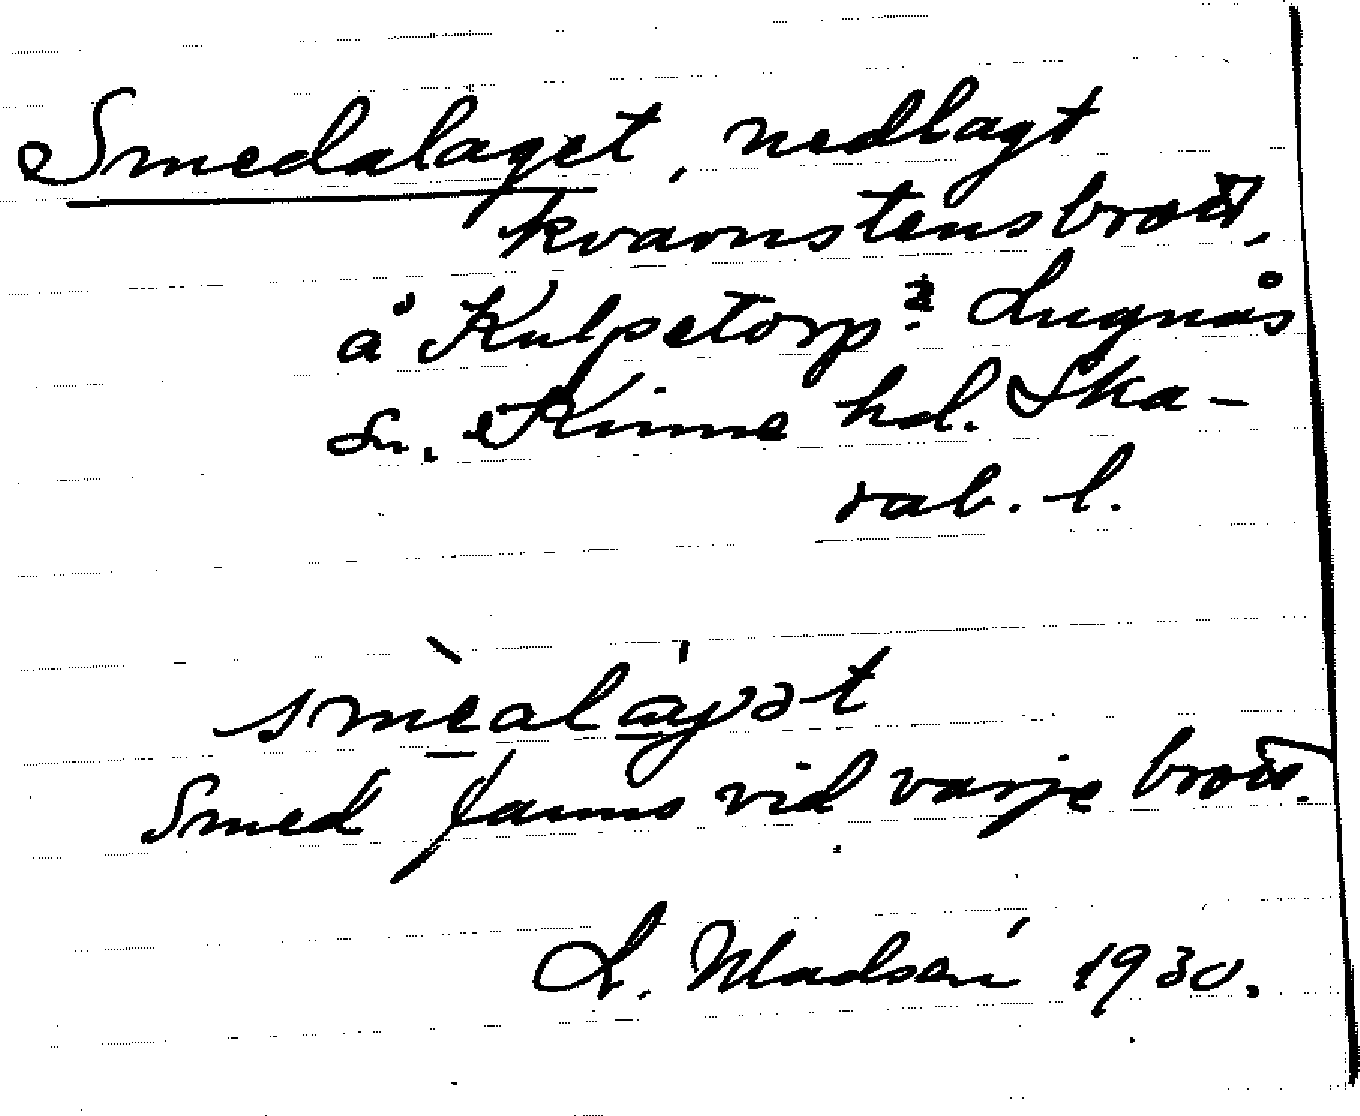 Smedalaget, nedlagt
kvarnstensbrott,
å Kulpetorp? Lugnås
sn. Kinne hd. Ska-
rab. l.
smèalágət
Smed fanns vid varje brott.
L. Madsén 1930.